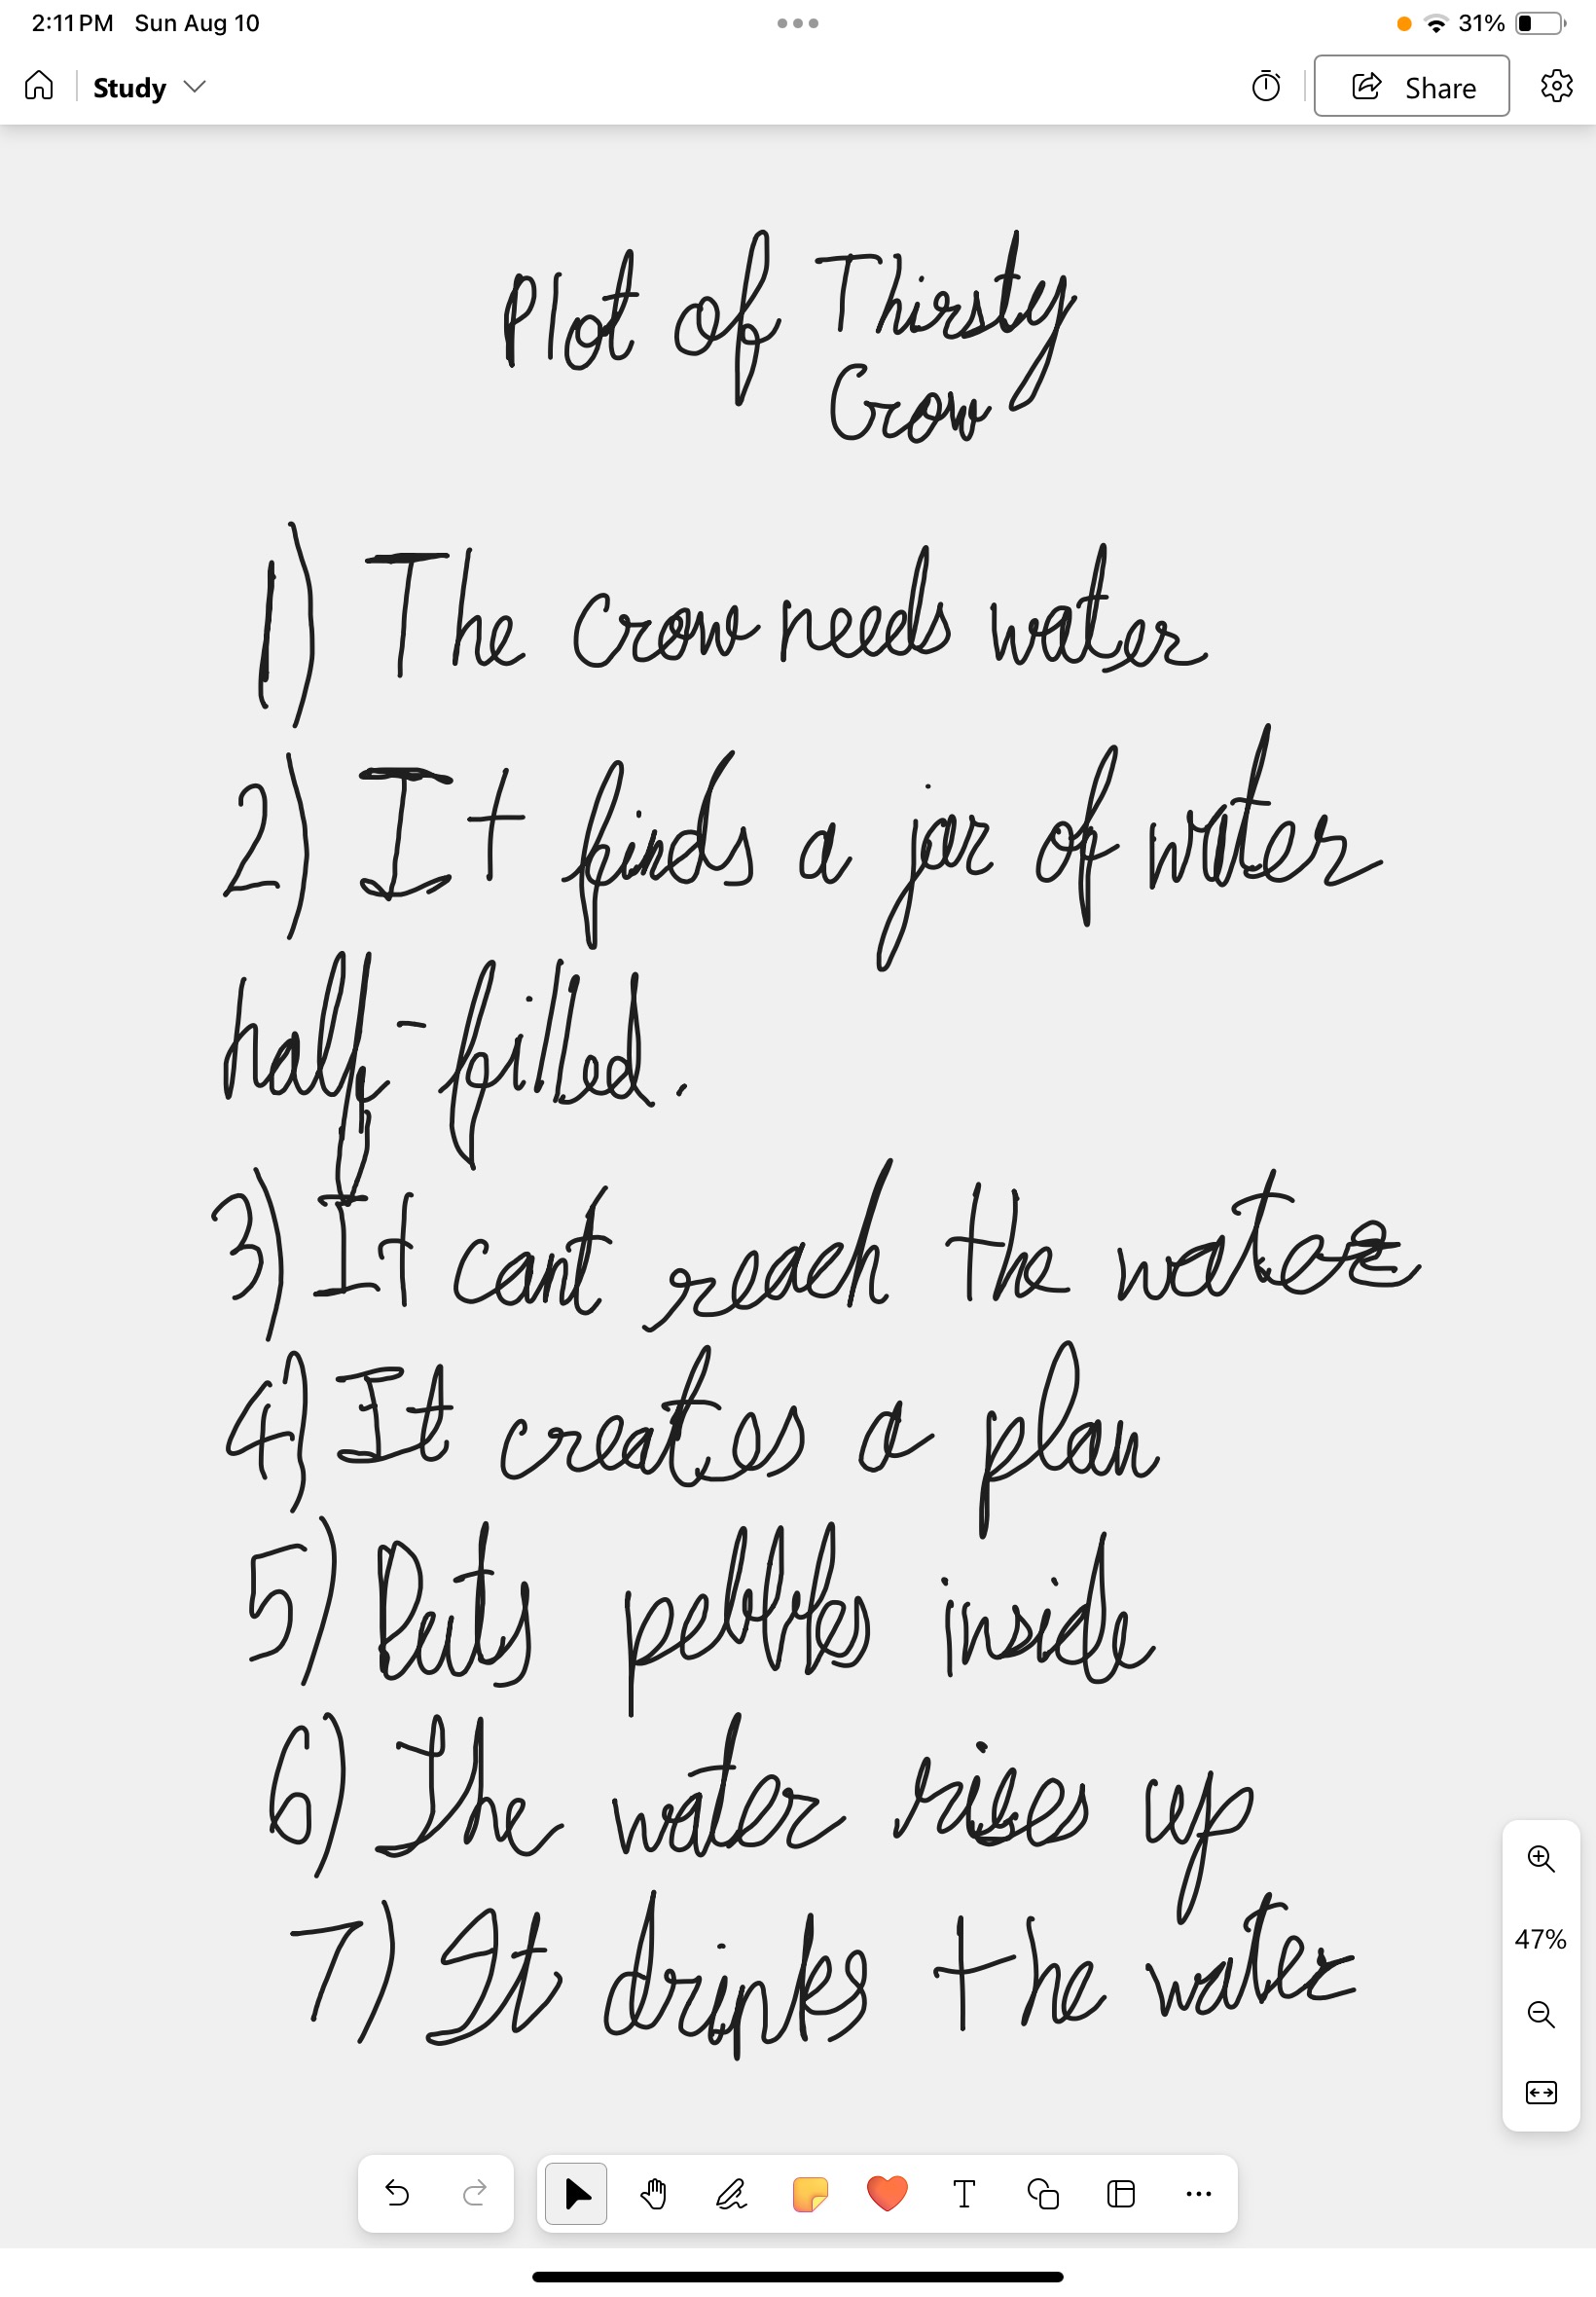 2:11 PM Sun Aug 10
31%
Study
Share
Plot of Thirsty
Crow
1) The crow needs water
2) It finds a jar of water
half-filled.
3) It cant reach the water
4) It creates a plan
5) Puts pebbles inside
6) The water rises up
7) It drinks the water
47%
T